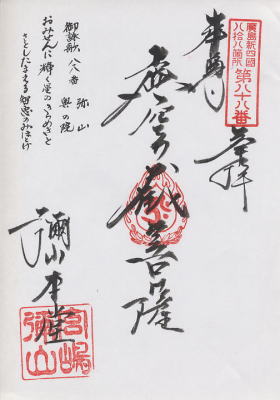 廣島新四國
八拾八箇所
第八十八番
奉納
登拝
虚空蔵菩薩
御詠歌 八八番 弥山 奥の院
おみせんに輝く星のきらめきと
さとしたまえる智恵のみほとけ
彌山本堂
宮嶋
弥山